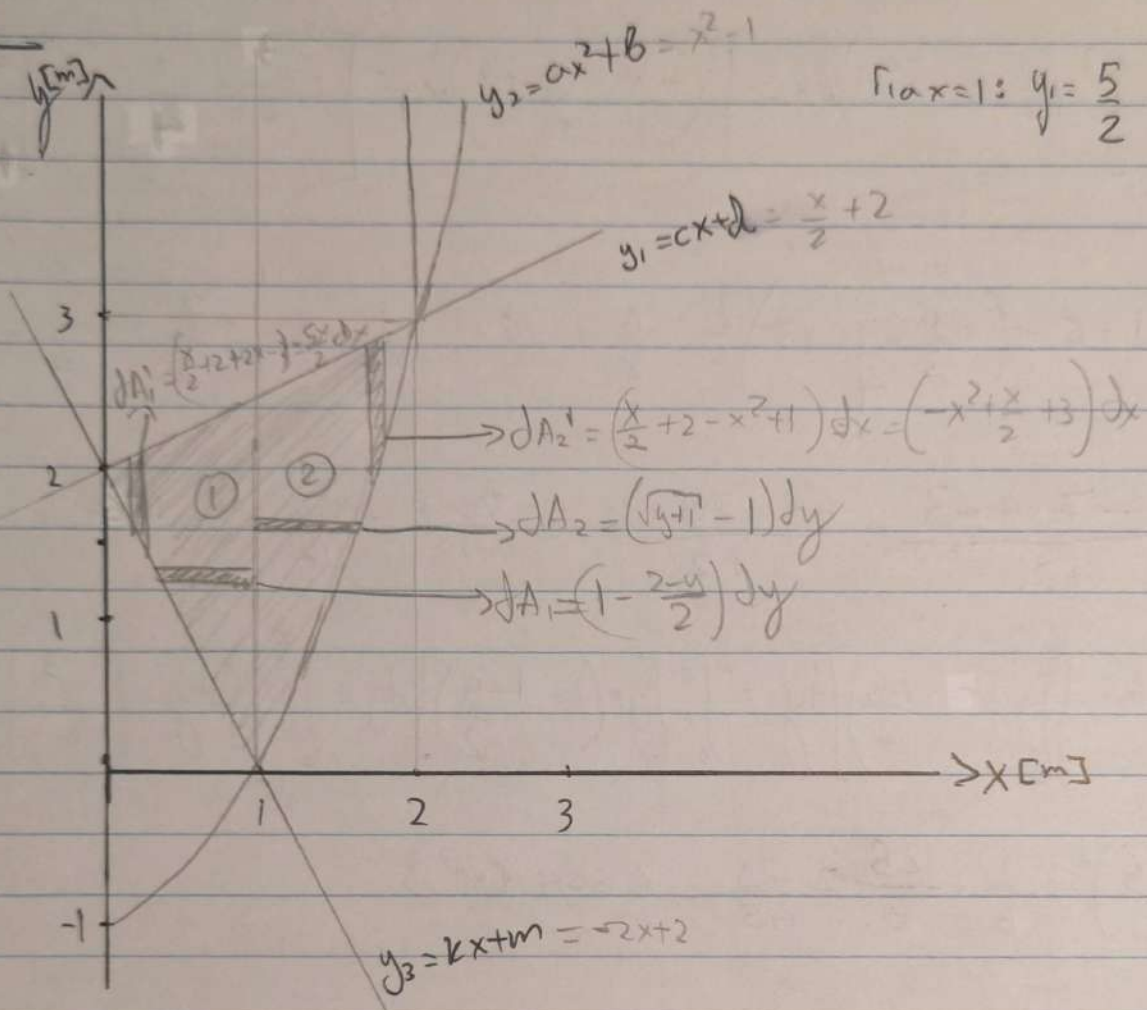 y[m]
y₂=ax²+b = x²-1
Για x=1: y₁ = 5/2
y₁=cx+d = x/2 + 2
3
dA₁' = (x/2+2+2x-2) = 5x/2 dx
dA₂' = (x/2 + 2 - x² + 1) dx = (-x² + x/2 + 3) dx
2
① ②
dA₂ = (√(y+1) - 1) dy
dA₁ = (1 - (2-y)/2) dy
1
x[m]
1 2 3
-1
y₃=kx+m = -2x+2